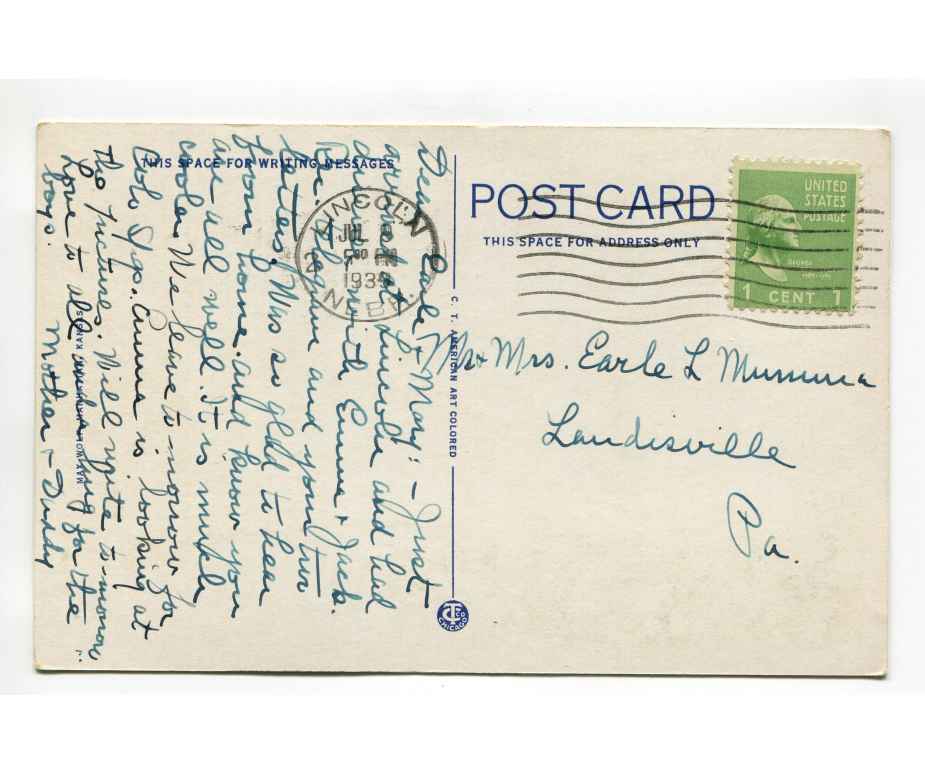 THIS SPACE FOR WRITING MESSAGES
Dear Earle & Mary: - Just
arrived at Lincoln and had
dinner with Emma & Jack.
Rec'd and your two
letters. Was so glad to hear
from home and know you
are all well. It is much
cooler. We leave to-morrow for
Colo Spgs. Anna is looking at
the pictures. Will write to-morrow
Love to all and a hug for the
boys.
Mother & Daddy
LINCOLN
JUL
1939
NEBR.
2
POST CARD
THIS SPACE FOR ADDRESS ONLY
UNITED
STATES
POSTAGE
1 CENT 1
Mr & Mrs. Earle L Mumma
Landisville
Pa.
C. T. AMERICAN ART COLORED
CT CO
CHICAGO
KANSAS